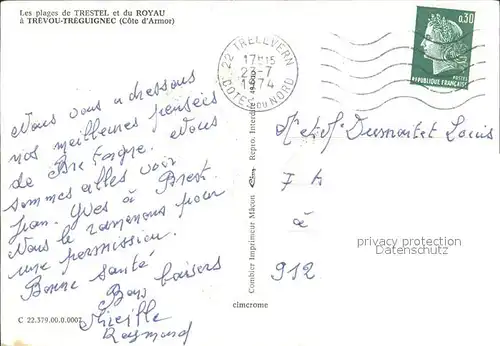 Les plages de TRESTEL et du ROYAU
à TRÉVOU-TRÉGUIGNEC (Côte d'Armor)
22 TRELEVERN
17H15
1974
COTES DU NORD
0,30
POSTES
REPUBLIQUE FRANÇAISE
Nous vous adressons
nos meilleures pensées
de Bretagne. Nous
sommes allés voir
Jean-Yves à Brest.
Nous le ramenons pour
une permission.
Bonne santé
Bons baisers
Mireille
Raymond
C 22.379.00.0.0007
Combier Imprimeur Mâcon Repro. Interdite
cimcrome
Mr et Me Dumortet Louis
7 A
à
912
privacy protection
Datenschutz